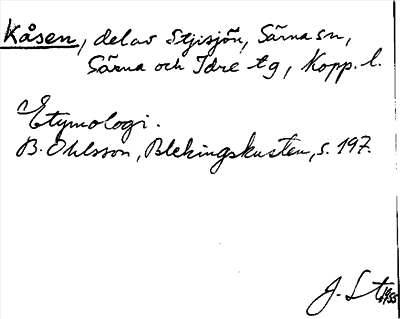 Kåsen, del av Stjisjön, Särna sn,
Särna och Idre tg, Kopp. l.
Etymologi.
B. Ohlsson, Blekingskusten, s. 197.
J. L-t, 1955